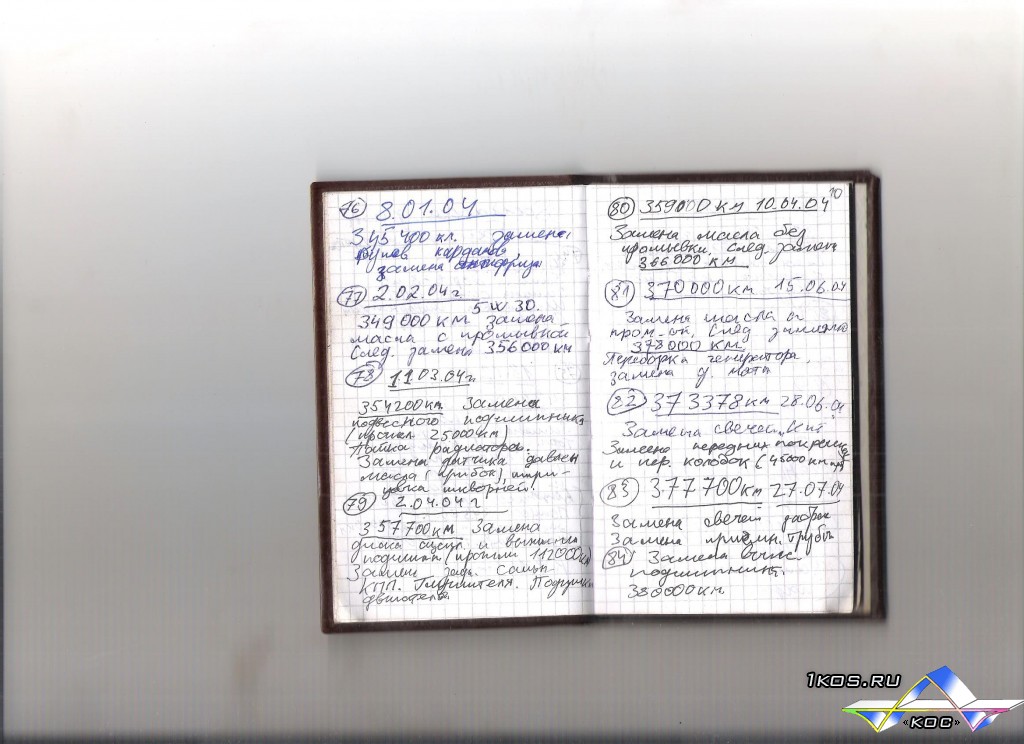 76 8.01.04
345 400 кл. замена
замена антифриза
77 2.02.04 г.
5 w 30.
349 000 км замена
масла с промывкой
След. замена 356 000 км
78 11.03.04 г.
354200 км Замена
подвесного подшипника
25000 км)
Пайка радиаторов.
Замена датчика давлен
масла (грибок),
шкворней.
79 2.04.04 г
357700 км Замена
диска сцепл и выжимн
подшипн (прошли 112000 км)
Замена задн. сальн
КПП. Глушителя. Подушки
двигателя
10
80 359000 км 10.04.04
Замена масла без
промывки. След. замена
366000 км
81 370000 км 15.06.04
Замена масла с
пром-ой. След замена
378000 км.
Переборка генератора,
замена д.
82 373378 км 28.06.04
Замена свечей
Замена передних покрышек
и пер. колодок (45000 км
83 377700 км 27.07.04
Замена свечей
Замена приемн. трубы
84 Замена выж.
подшипника.
380000 км
1KOS.RU
«КОС»